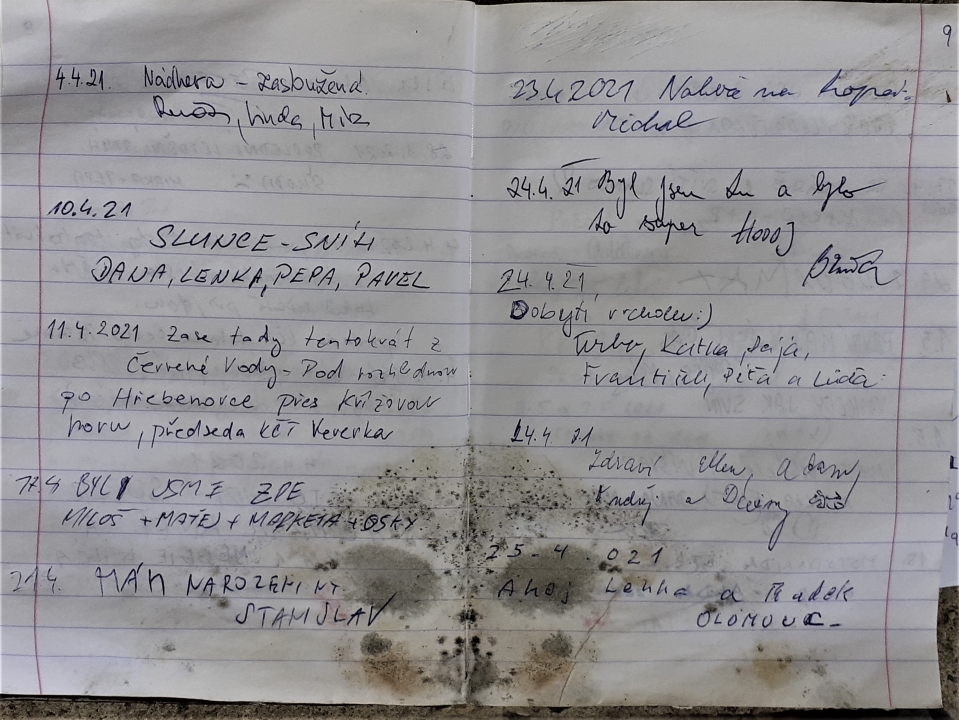 4.4.21. Nádhera - zasloužená
Linda, Mila
10.4.21
SLUNCE - SNÍH
DANA, LENKA, PEPA, PAVEL
11.4.2021 Zase tady tentokrát z
Červené Vody - Pod rozhlednou
po Hřebenovce přes Křížovou
horu, předseda KČT Veverka
17.4 BYLI JSME ZDE
MILOŠ + MATĚJ + MARKÉTA + OSKY
21.4. MÁM NAROZENINY
STANISLAV
9
23.4.2021 na
Michal
24.4.21 Byl jsem tu a bylo
to super
24.4.21
Dobytí vrcholu :)
Turbo, Katka,
František, Péťa a Liďa
24.4.21
Zdraví Ellen, Adam,
Ondřej a
25-4 021
Ahoj Lenka a Radek
OLOMOUC-